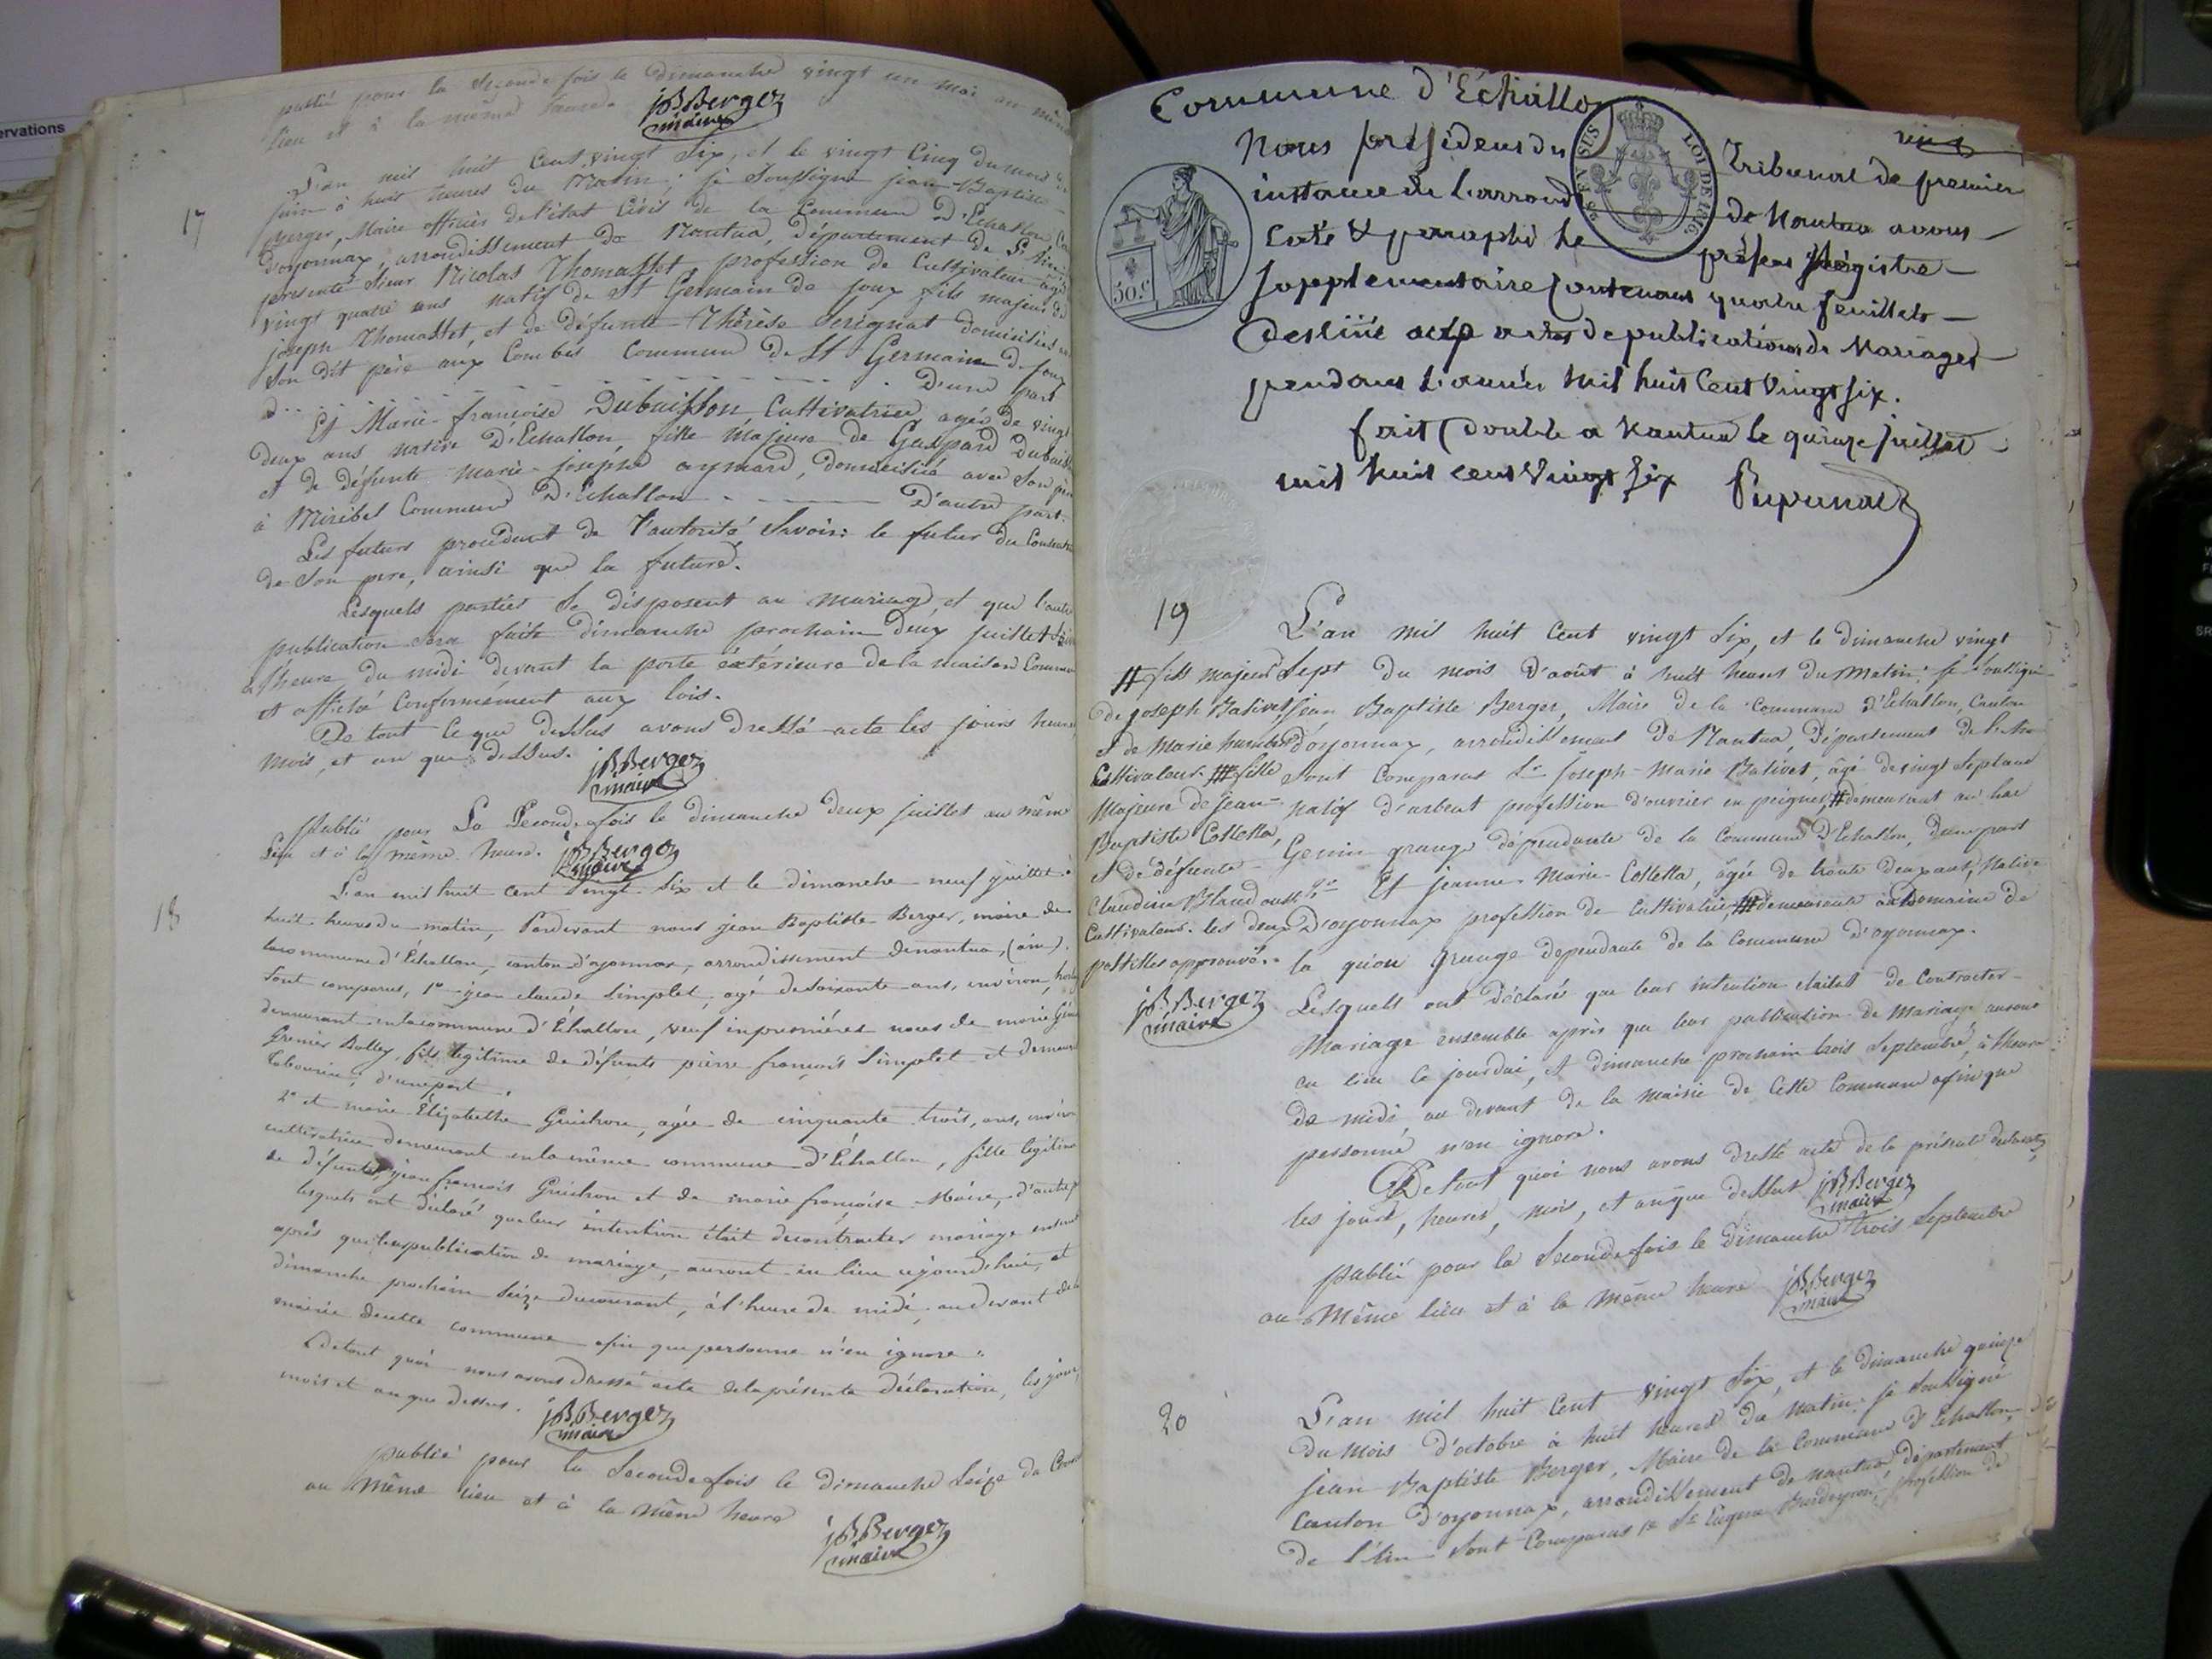 ervations
publié pour la seconde fois le dimanche vingt un mai au même
lieu et à la même heure. JBBerger
maire
17
L'an mil huit cent vingt six, et le vingt cinq du mois de
juin à huit heures du Matin; je soussigné jean-Baptiste
Berger, Maire officier de l'état Civil de la Commune D'Echallon,
d'oyonnax, arrondissement de Nantua, département de L'Ain
présenté Sieur Nicolas Thomasset profession de Cultivateur agé
vingt quatre ans natif de St Germain de joux fils majeur de
joseph Thomasset, et de défunte Thérèse Serignat domiciliés
Son dit père aux Combes Commune de St Germain de joux
D'une part
Et Marie-françoise Dubuisson Cultivatrice agée de vingt
Deux ans native D'Echallon fille majeure de Gaspard Dubuis
et de défunte marie-josephe aymard, domiciliée avec Son père
à Miribel Commune D'Echallon D'autre part.
Les futurs procédant de l'autorité Savoir: le futur du Consent
de Son pere, ainsi que la future.
Lesquels parties Se disposent au mariage, et que l'autre
publication sera faite dimanche prochain deux juillet
à l'heure du midi devant la porte extérieure de la maison Commune
et affiché Conformément aux lois.
De tout Ce que dessus avons dressé acte les jours heures
mois, et an que dessus. JBBerger
maire
Publié pour La Seconde fois le dimanche deux juillet au même
Lieu et à la même heure. JBBerger
maire
18
L'an mil huit cent vingt-six et le dimanche neuf juillet à
huit heures du matin, Pardevant nous jean Baptiste Berger, maire de
lacommune d'Échallon, canton d'oyonnax, arrondissement denantua, (ain).
Sont comparus, 1° jean claude Simplet, agé desoixante ans, environ,
demeurant enlacommune d'Échallon, veuf enpremières noces de marie
Grenier Bolley, fils légitime de défunts pierre françois Simplet et
Tabourin; d'unepart.
2° et marie Élizabethe Guichon, agée de cinquante trois, ans, environ
cultivatrice demeurant enla même commune d'Échallon, fille légitime
de défunts, jean françois Guichon et de marie françoise Maire, d'autre
lesquels ont déclaré queleur intention était decontracter mariage ensemble
après queleurpublication de mariage, auront eu lieu cejourdhui, et
dimanche prochain Seize ducourant, à l'heure de midi, audevant de la
mairie decette commune afin que personne n'en ignore.
Detout quoi nous avons dressé acte delaprésente déclaration, les jour,
mois et an que dessus. JBBerger
maire
Publié pour la Seconde fois le dimanche Seize du Cour
au même lieu et à la même heure
JBBerger
maire
Commune d'Échallon
vingt
Nous président du Tribunal de premier
instance de l'arrond de Nantua avons
Coté & paraphé le présent Régistre
Supplémentaire Contenant quatre feuillets
Destiné aux actes de publications de Mariages
pendant l'année Mil huit Cent Vingt six.
fait Double a Nantua le quinze juillet
mil huit cent Vingt Six
50.c
EN SUS
LOI DE 1816
19
L'an mil huit cent vingt six, et le dimanche vingt
Sept du mois d'août à huit heures du matin; je soussigné
jean Baptiste Berger, Maire de la Commune d'Echallon, Canton
d'oyonnax, arrondissement de Nantua, Département de l'Ain
Sont Comparus Sr joseph-Marie Balivet, âgé devingt Septans
natif d'arbent profession d'ouvrier en peignes, # demeurant au lac
Genin grange dépendante de la Commune D'Echallon, d'une part
Et jeanne-Marie-Colletta, âgée de trente deux ans, Native
D'oyonnax profession de Cultivatrice ## demeurante au Domaine de
la quiou grange dependante de la Commune d'oyonnax.
Lesquels ont Déclaré que leur intention était de Contracter
Mariage ensemble après que leur publication de Mariage auront
eu lieu Ce jourdui, et dimanche prochain trois Septembre, à l'heure
de midi, au devant de la Mairie de Cette Commune afin que
personne n'en ignore.
De tout quoi nous avons dressé acte de la présente déclaration
les jours, heures, mois, et an que dessus JBBerger
maire
# fils majeur
de joseph Balivet
et de Marie humbert
Cultivateur. ## fille
Majeure de jean-
Baptiste Colletta,
et de défunte
Claudine
Cultivateurs. les deux
postilles approuvé.
JBBerger
maire
Publié pour la Seconde fois le dimanche trois Septembre
au Même lieu et à la même heure JBBerger
maire
20
L'an mil huit Cent vingt Six, et le dimanche quinze
du mois d'octobre à huit heures du Matin; je soussigné
jean Baptiste Berger, Maire de la Commune d'Echallon,
Canton D'oyonnax, arrondissement de nantua, département
de l'Ain Sont Comparus 1° Sr Eugene profession de